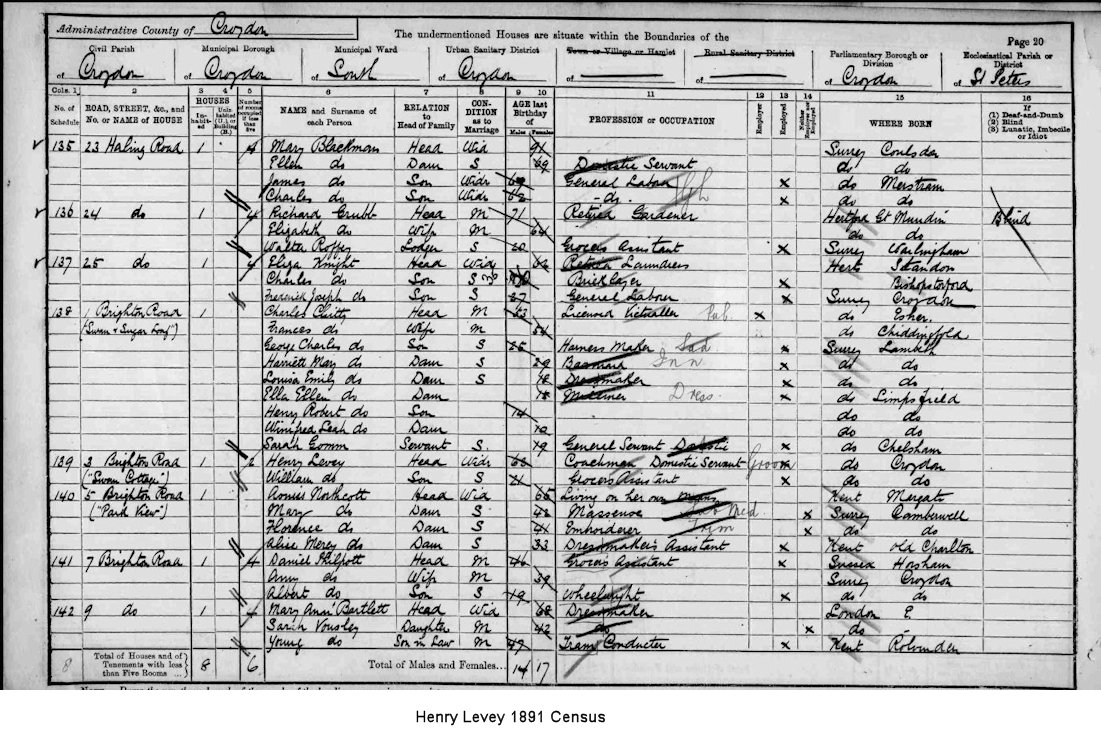 Administrative County of Croydon
The undermentioned Houses are situate within the Boundaries of the
Page 20
Civil Parish
Municipal Borough
Municipal Ward
Urban Sanitary District
Town or Village or Hamlet
Rural Sanitary District
Parliamentary Borough or Division
Ecclesiastical Parish or District
of Croydon of Croydon of South of Croydon of of of Croydon of St Peters
Cols. 1 2 3 4 5 6 7 8 9 10 11 12 13 14 15 16
No. of Schedule
ROAD, STREET, &c., and No. or NAME of HOUSE
HOUSES
In-habited
Unin-habited (U.), or Building (B.)
Number of rooms occupied if less than five
NAME and Surname of each Person
RELATION to Head of Family
CON-DITION as to Marriage
AGE last Birthday of
Males Females
PROFESSION or OCCUPATION
Employer
Employed
Neither Employer nor Employed
WHERE BORN
If (1) Deaf-and-Dumb (2) Blind (3) Lunatic, Imbecile or Idiot
135 23 Haling Road 1 4 Mary Blackman Head Wid 91 Surrey Coulsdon
Ellen do Daur S 69 Domestic Servant do do
James do Son Widr General Labour x do Merstram
Charles do Son Widr 62 - do - x do do
136 24 do 1 4 Richard Grubb Head M 71 Retired Gardener Hertford Gt Blind
Elizabeth do Wife M 64 do do
Walter Roffey Lodger S 20 Grocers Assistant x Surrey Warlingham
137 25 do 1 4 Eliza Knight Head Wid 62 Retired Laundress Herts Standon
Charles do Son S Bricklayer x Bishopstorford
Frederick Joseph do Son S 27 General Labourer x Surrey Croydon
138 1 Brighton Road 1 Charles Head M 53 Licensed Victualler Pub. x do Esher
("Swan & Sugar Loaf") Frances do Wife M 54 do Chiddingfold
George Charles do Son S 25 Harness Maker x Surrey Lambeth
Harriett Mary do Daur S 20 Barmaid Inn x do do
Louisa Emily do Daur S 18 Dressmaker x do do
Ella Ellen do Daur Milliner Dress x do Limpsfield
Henry Robert do Son 14 do do
Winifred Leah do Daur 10 do do
Sarah Gomm Servant S 19 General Servant Domestic x do Chelsham
139 3 Brighton Road 1 2 Henry Levey Head Widr 62 Coachman Domestic Servant Groom do Croydon
("Swan Cottage") William do Son S 21 Grocers Assistant x do do
140 5 Brighton Road 1 Northcott Head Wid 65 Living on her own Means Kent Margate
("Park View") Mary do Daur S 42 Masseuse x Surrey Camberwell
Florence do Daur S 41 Embroiderer x do do
Alice Mercy do Daur S 33 Dressmaker's Assistant x Kent Old Charlton
141 7 Brighton Road 1 4 Daniel Philpott Head M 46 Grocer's Assistant x Sussex Horsham
Amy do Wife M 39 Surrey Croydon
Albert do Son S 19 Wheelwright x do do
142 9 do 1 4 Mary Ann Bartlett Head Wid 68 Dressmaker London E
Sarah Vousley Daughter M 42 do x do
Young do Son in Law M 47 Tram Conductor x Kent Rolvenden
8 Total of Houses and of Tenements with less than Five Rooms ... 8 6 Total of Males and Females... 14 17
Henry Levey 1891 Census